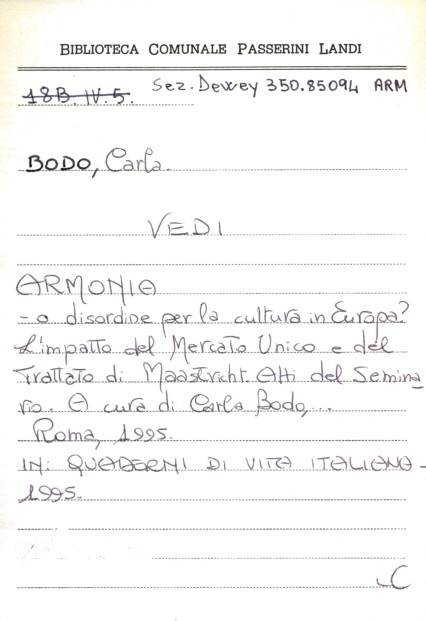 BIBLIOTECA COMUNALE PASSERINI LANDI
18B. IV. 5. Sez. Dewey 350.85094 ARM
BODO, Carla.
VEDI
ARMONIA
- o disordine per la cultura in Europa?
L'impatto del Mercato Unico e del
Trattato di Maastricht. Atti del Semina
rio. A cura di Carla Bodo,...
Roma, 1995.
IN: QUADERNI DI VITA ITALIANA -
1995.
C